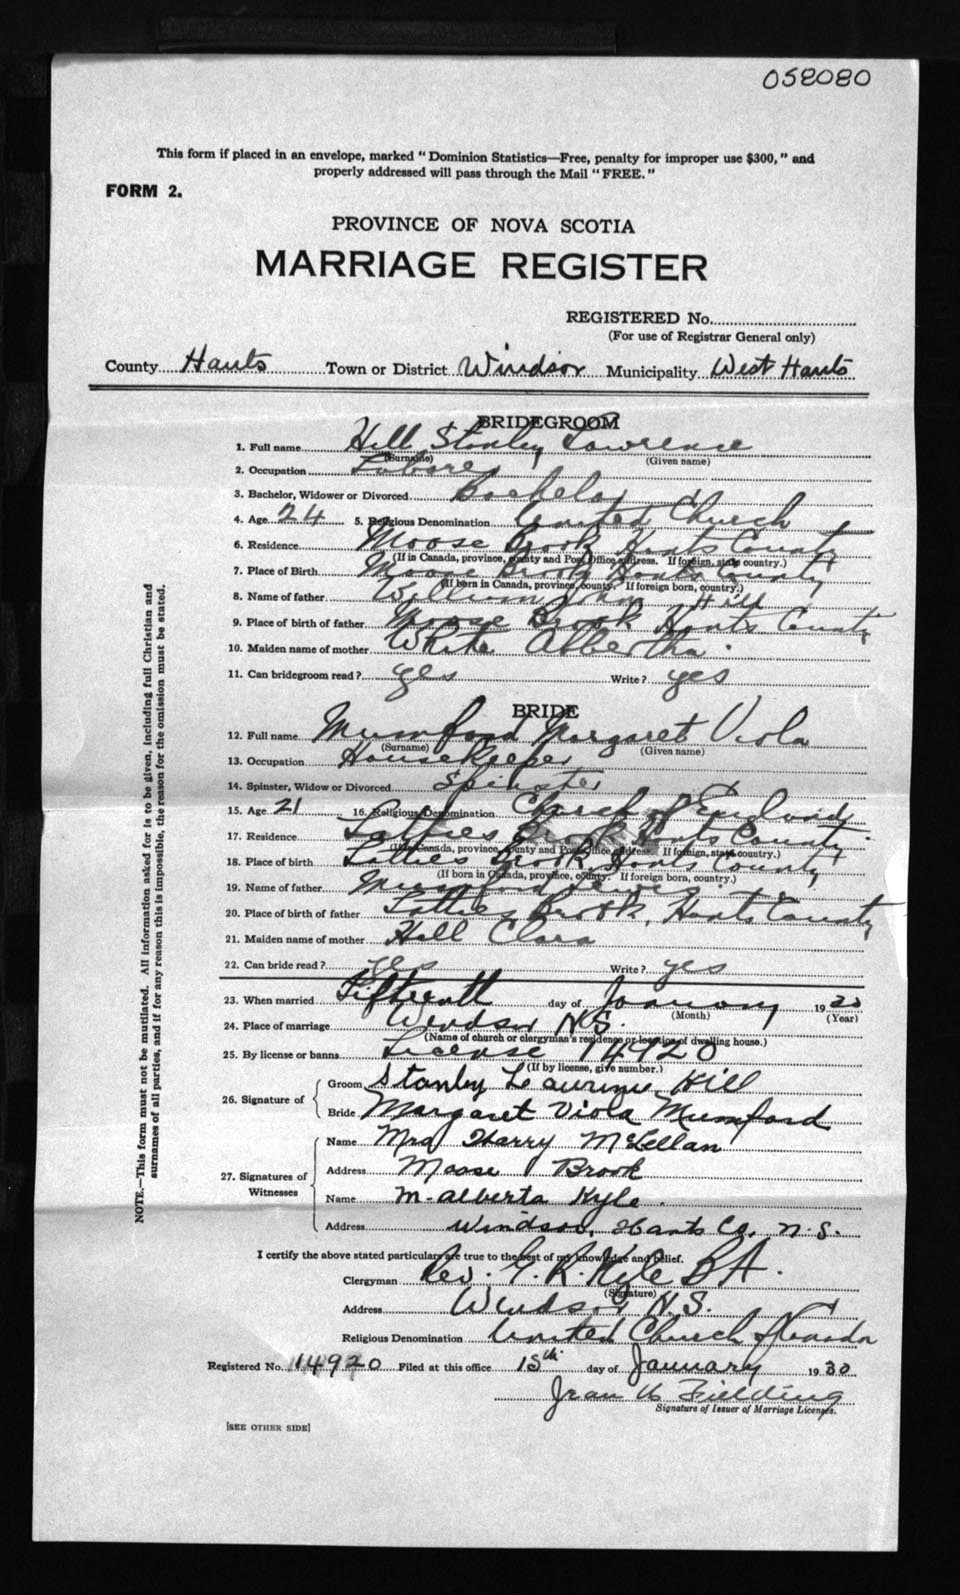 058080
This form if placed in an envelope, marked "Dominion Statistics—Free, penalty for improper use $300," and
properly addressed will pass through the Mail "FREE."
FORM 2.
PROVINCE OF NOVA SCOTIA
MARRIAGE REGISTER
REGISTERED No.
(For use of Registrar General only)
County Hants Town or District Windsor Municipality West Hants
BRIDEGROOM
1. Full name Hill Stanley Lawrence
(Surname) (Given name)
2. Occupation Laborer
3. Bachelor, Widower or Divorced Bachelor
4. Age 24 5. Religious Denomination United Church
6. Residence Moose Brook Hants County
(If in Canada, province, county and Post Office address. If foreign, state country.)
7. Place of Birth Moose Brook Hants County
(If born in Canada, province, county. If foreign born, country.)
8. Name of father William John Hill
9. Place of birth of father Moose Brook Hants County
10. Maiden name of mother White Albertha
11. Can bridegroom read? yes Write? yes
BRIDE
12. Full name Mumford Margaret Viola
(Surname) (Given name)
13. Occupation Housekeeper
14. Spinster, Widow or Divorced Spinster
15. Age 21 16. Religious Denomination Church of England
17. Residence Brook Hants County
(If in Canada, province, county and Post Office address. If foreign, state country.)
18. Place of birth Brook, Hants County
(If born in Canada, province, county. If foreign born, country.)
19. Name of father Mumford Lewis
20. Place of birth of father Brook, Hants County
21. Maiden name of mother Hill Clara
22. Can bride read? yes Write? yes
23. When married Fifteenth day of January 1930
(Month) (Year)
24. Place of marriage Windsor N.S.
(Name of church or clergyman's residence or location of dwelling house.)
25. By license or banns License 14920
(If by license, give number.)
26. Signature of Groom Stanley Laurence Hill
Bride Margaret Viola Mumford
27. Signatures of Witnesses Name Mrs Harry McLellan
Address Moose Brook
Name M-alberta Kyle.
Address Windsor, Hants Co, N.S.
I certify the above stated particulars are true to the best of my knowledge and belief.
Clergyman Rev. G. R. Kyle BA.
(Signature)
Address Windsor N.S.
Religious Denomination United Church of Canada
Registered No. 14920 Filed at this office 15th day of January 1930
Fielding
Signature of Issuer of Marriage Licenses.
[SEE OTHER SIDE]
NOTE.—This form must not be mutilated. All information asked for is to be given, including full Christian and
surnames of all parties, and if for any reason this is impossible, the reason for the omission must be stated.